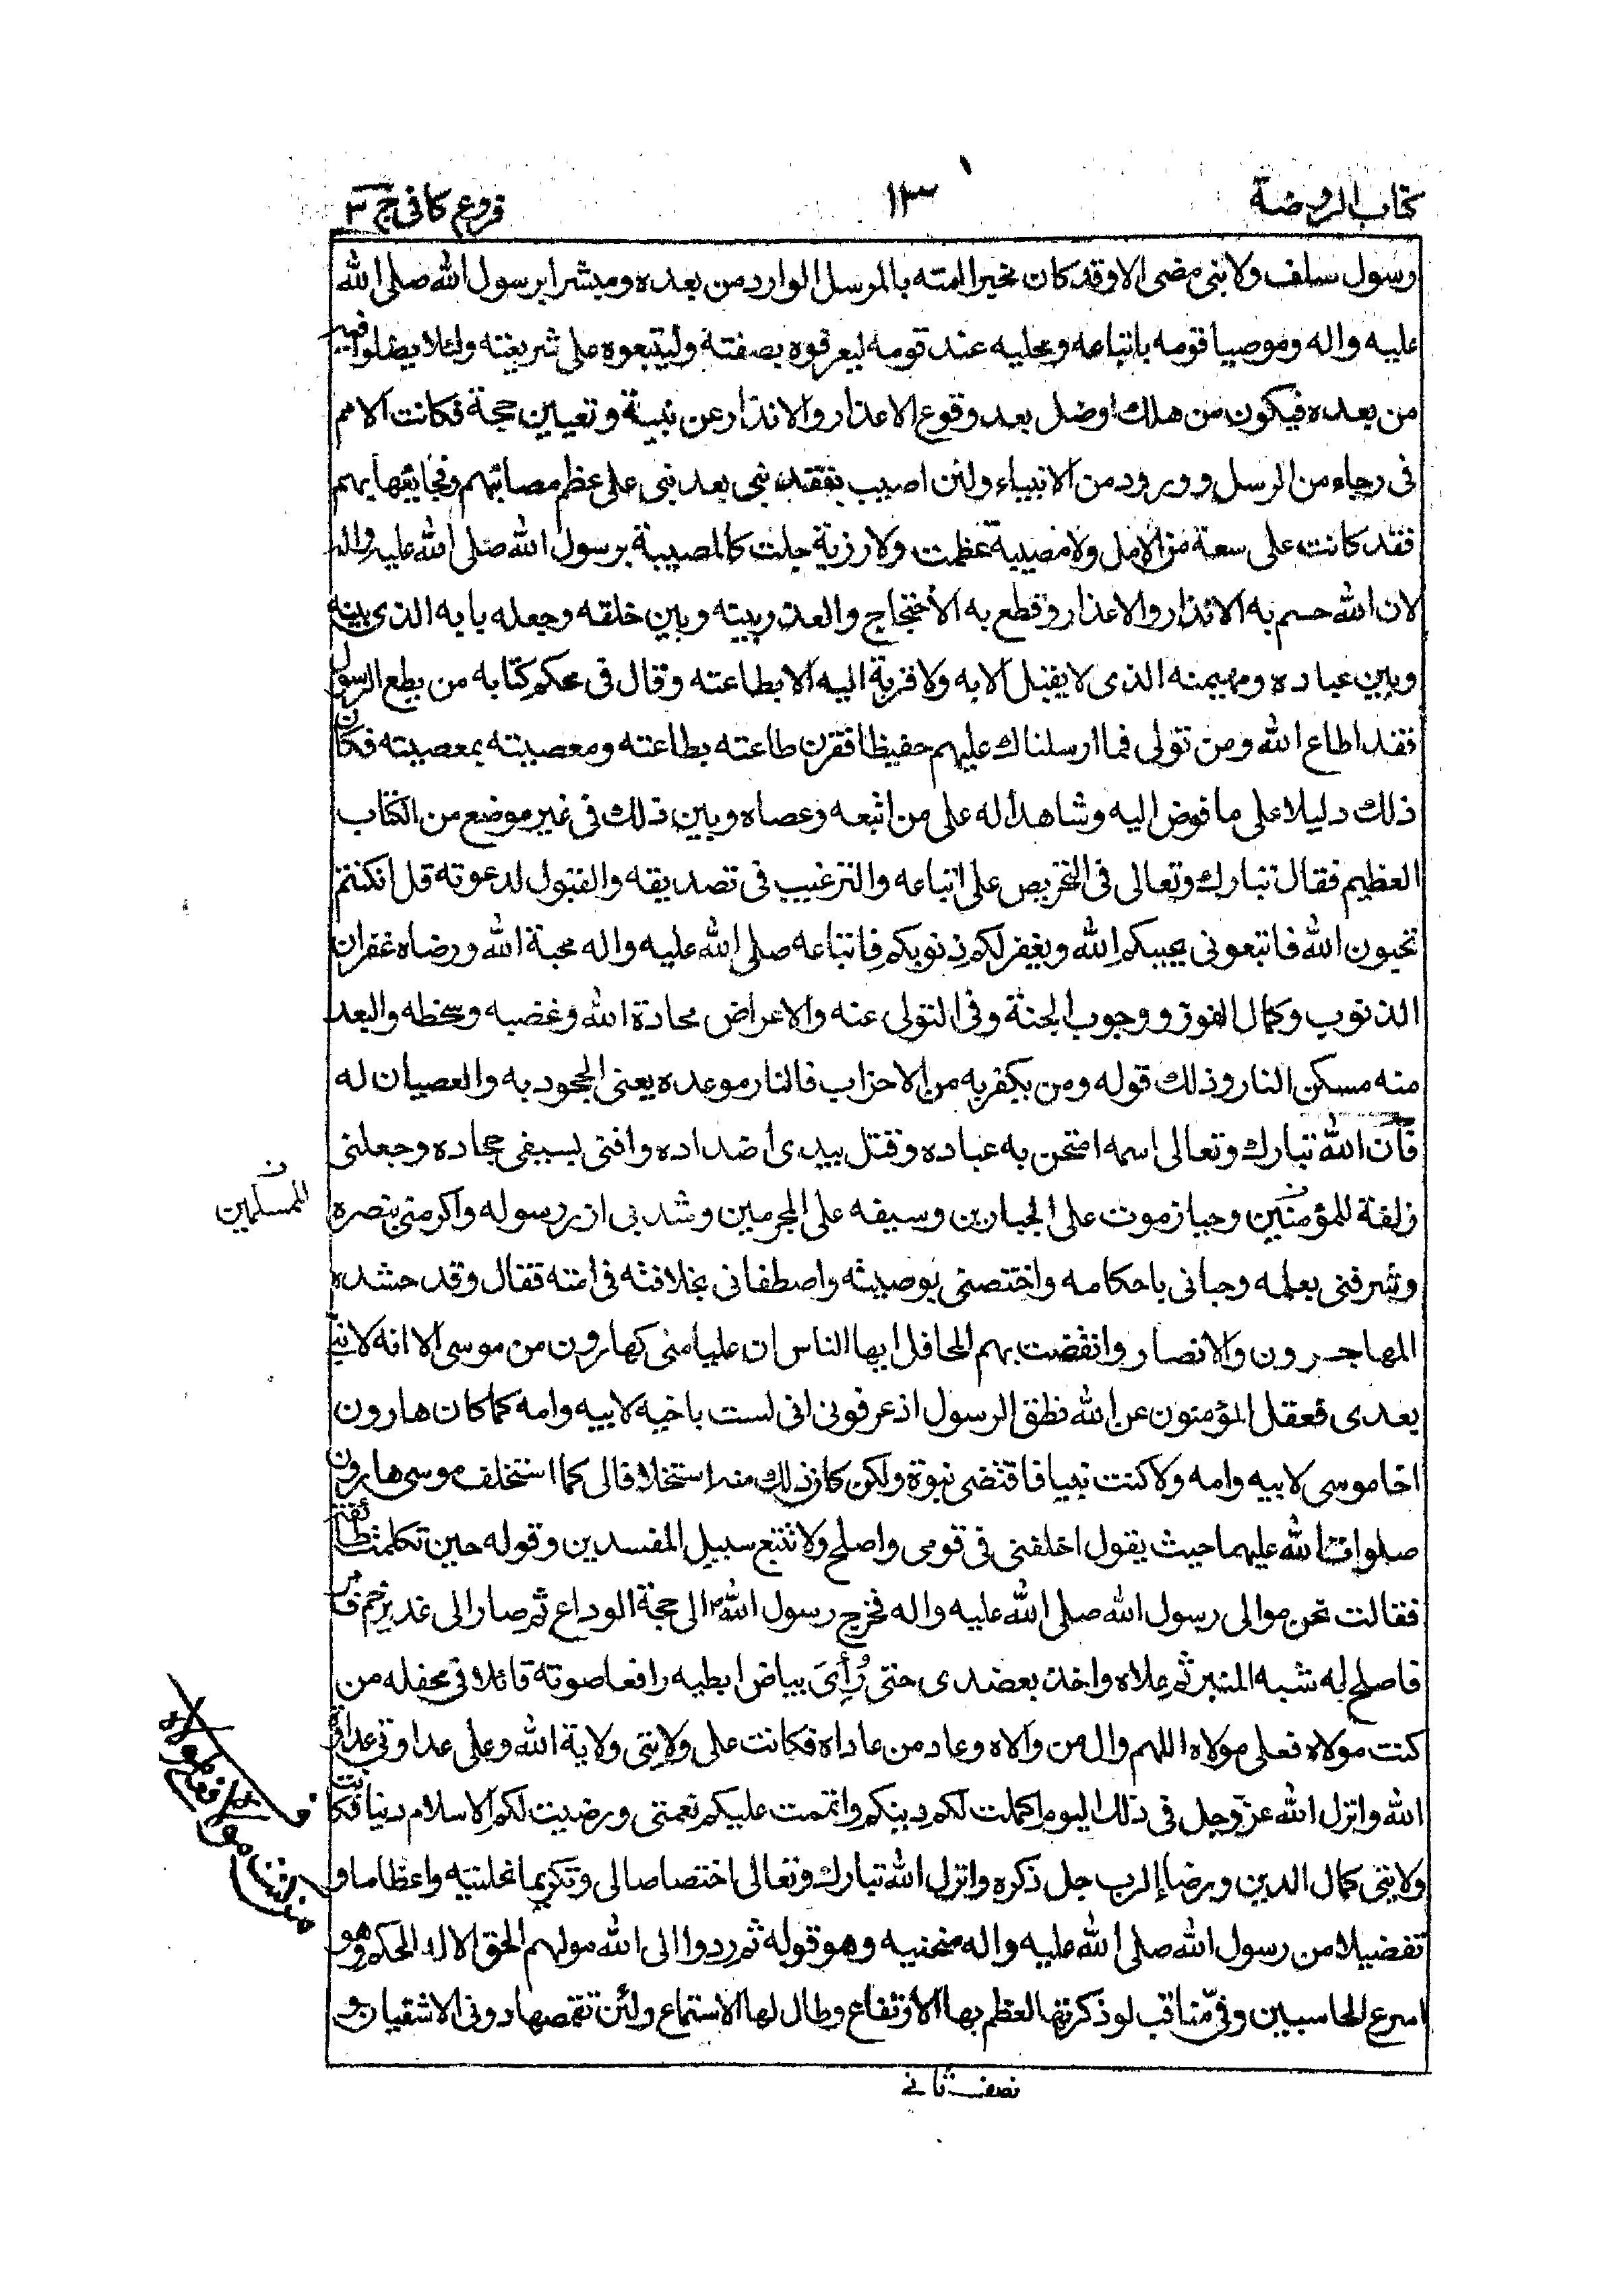 كتاب الروضة
١٣
فروع كافى ج ٣
رسول سلف ولا نبى مضى الا وقد كان مخبرا امته بالمرسل الوارد من بعده ومبشرا برسول الله صلى الله
عليه واله وموصيا قومه باتباعه ومحليه عند قومه ليعرفوه بصفته وليتبعوه على شريعته ولئلا يضلوا فيه
من بعده فيكون من هلك او ضل بعد وقوع الاعذار والانذار عن بينة وتعيين حجة فكانت الامم
فى رجاء من الرسل وورود من الانبياء ولئن اصيبت بفقد نبى بعد نبى على عظم مصائبهم وفجايعها بهم
فقد كانت على سعة من الامل ولا مصيبة عظمت ولا رزية جلت كالمصيبة برسول الله صلى الله عليه واله
لان الله حسم به الانذار والاعذار وقطع به الاحتجاج والعذر بينه وبين خلقه وجعله بابه الذى بينه
وبين عباده ومهيمنه الذى لا يقبل الا به ولا قربة اليه الا بطاعته وقال فى محكم كتابه من يطع الرسول
فقد اطاع الله ومن تولى فما ارسلناك عليهم حفيظا فقرن طاعته بطاعته ومعصيته بمعصيته فكان
ذلك دليلا على ما فوض اليه وشاهدا له على من اتبعه وعصاه وبين ذلك فى غير موضع من الكتاب
العظيم فقال تبارك وتعالى فى التحريص على اتباعه والترغيب فى تصديقه والقبول لدعوته قل ان كنتم
تحبون الله فاتبعونى يحببكم الله ويغفر لكم ذنوبكم فاتباعه صلى الله عليه واله محبة الله ورضاه غفران
الذنوب وكمال الفوز ووجوب الجنة وفى التولى عنه والاعراض محادة الله وغضبه وسخطه والبعد
منه مسكن النار وذلك قوله ومن يكفر به من الاحزاب فالنار موعده يعنى الجحود به والعصيان له
فان الله تبارك وتعالى اسمه امتحن به عباده وقتل بيدى اضداده وافنى بسيفى جحاده وجعلنى
زلفة للمؤمنين وحياز موت على الجبارين وسيفه على المجرمين وشد بى ازر رسوله واكرمنى بنصره
ن
للمسلمين
وشرفنى بعلمه وحبانى باحكامه واختصنى بوصيته واصطفانى بخلافته فى امته فقال وقد حشده
المهاجرون والانصار وانغصت بهم المحافل ايها الناس ان عليا منى كهارون من موسى الا انه لا نبى
بعدى فعقل المؤمنون عن الله نطق الرسول اذ عرفونى انى لست باخيه لابيه وامه كما كان هارون
اخا موسى لابيه وامه ولا كنت نبيا فاقتضى نبوة ولكن كان ذلك منه استخلافا لى كما استخلف موسى هارون
صلوات الله عليهما حيث يقول اخلفنى فى قومى واصلح ولا تتبع سبيل المفسدين وقوله حين تكلمت طائفة
فقالت نحن موالى رسول الله صلى الله عليه واله فخرج رسول الله ص الى حجة الوداع ثم صار الى غدير خم فامر
فاصلح له شبه المنبر ثم علاه واخذ بعضدى حتى رأى بياض ابطيه رافعا صوته قائلا فى محفله من
كنت مولاه فعلى مولاه اللهم وال من والاه وعاد من عاداه فكانت على ولايتى ولاية الله وعلى عداوتى عداوة
الله وانزل الله عز وجل فى ذلك اليوم اكملت لكم دينكم واتممت عليكم نعمتى ورضيت لكم الاسلام دينا فكانت
ولايتى كمال الدين ورضا الرب جل ذكره وانزل الله تبارك وتعالى اختصاصا لى وتكريما نحلنيه واعظاما و
تفضيلا من رسول الله صلى الله عليه واله منحنيه وهو قوله ثم ردوا الى الله موليهم الحق الا له الحكم وهو
اسرع الحاسبين وفى مناقب لو ذكرتها لعظم بها الارتفاع وطال لها الاستماع ولئن تقمصها دونى الاشقيان و
نصف ثانى